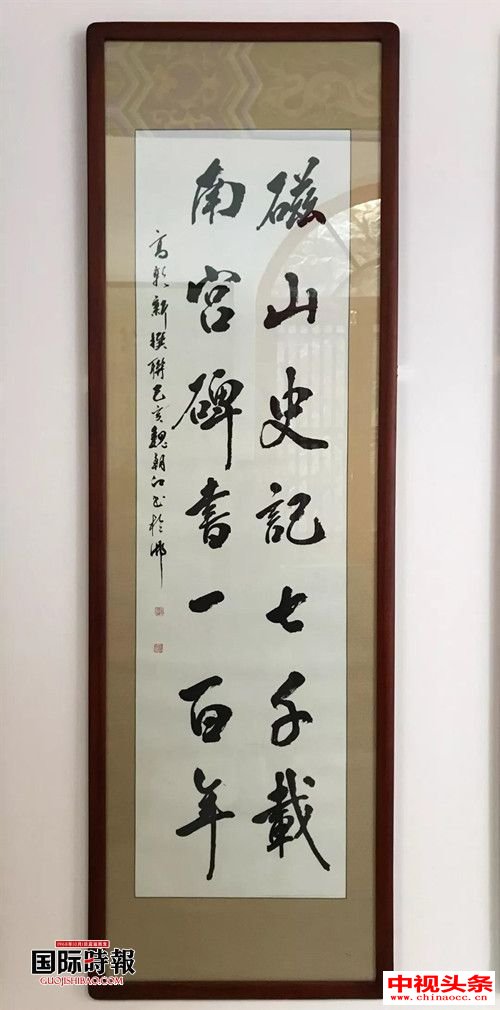 磁山史記七千載
南宮碑書一百年
新撰聯己亥魏朝
1968年10月1日
国际時報
GUOJISHIBAO.COM
中视头条
www.chinaocc.cn